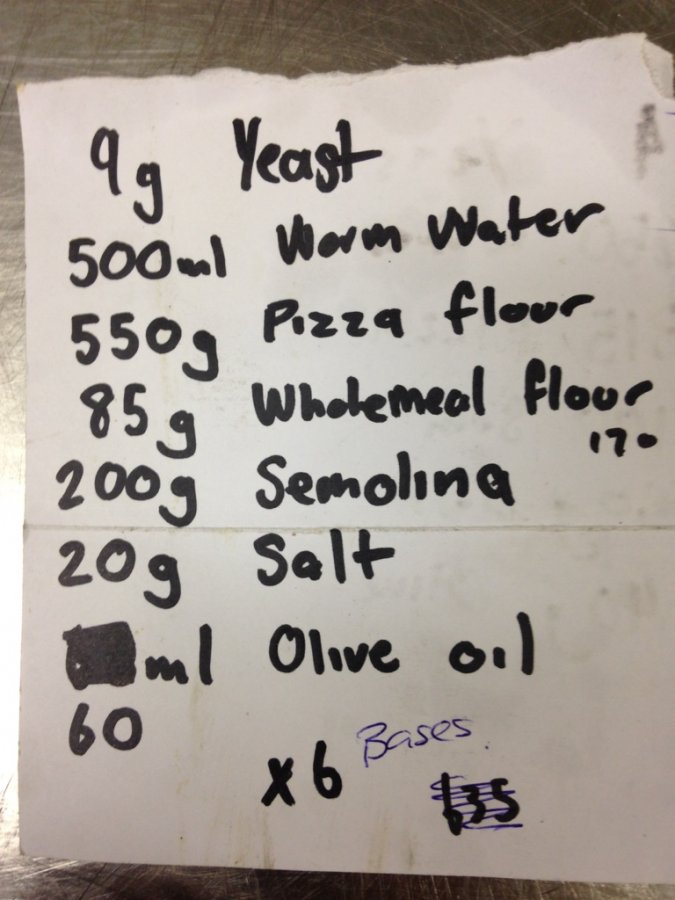 9g Yeast
500ml Worm Water
550g Pizza flour
85g Wholemeal flour
170
200g Semolina
20g Salt
ml Olive oil
60
x 6 Bases